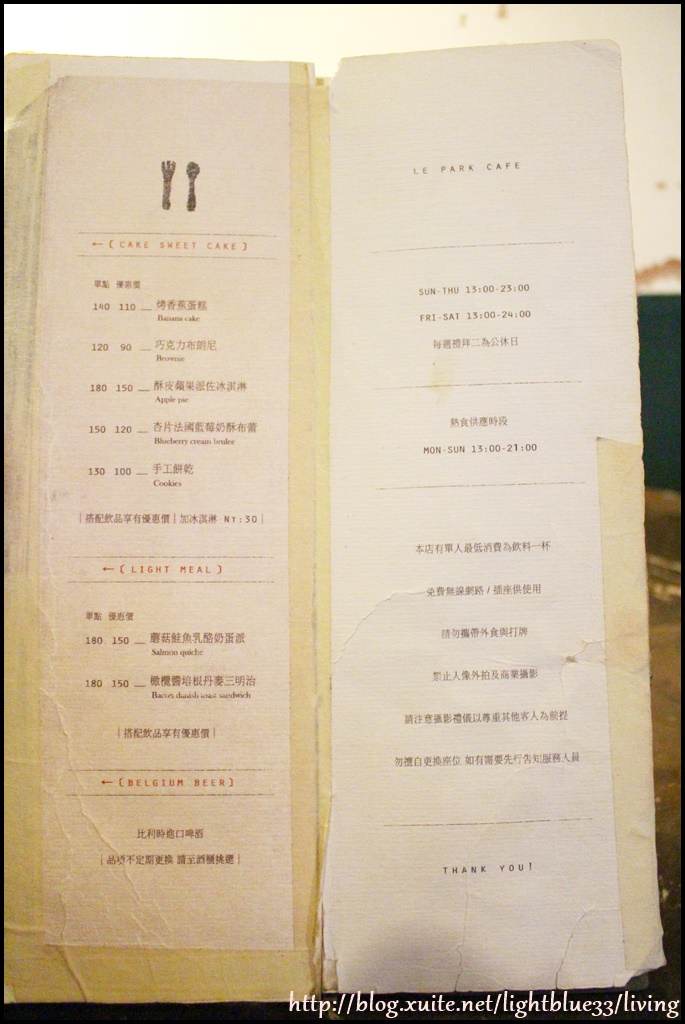 ←[CAKE SWEET CAKE]
單點 優惠價
140 110 __ 烤香蕉蛋糕
Banana cake
120 90 __ 巧克力布朗尼
Brownie
180 150 __ 酥皮蘋果派佐冰淇淋
Apple pie
150 120 __ 杏片法國藍莓奶酥布蕾
Blueberry cream brulee
130 100 __ 手工餅乾
Cookies
|搭配飲品享有優惠價|加冰淇淋 NT:30|
←[LIGHT MEAL]
單點 優惠價
180 150 __ 蘑菇鮭魚乳酪奶蛋派
Salmon quiche
180 150 __ 橄欖醬培根丹麥三明治
Bacon danish toast sandwich
|搭配飲品享有優惠價|
←[BELGIUM BEER]
比利時進口啤酒
|品項不定期更換 請至酒櫃挑選|
LE PARK CAFE
SUN-THU 13:00-23:00
FRI-SAT 13:00-24:00
每週禮拜二為公休日
熱食供應時段
MON-SUN 13:00-21:00
本店有單人最低消費為飲料一杯
免費無線網路 / 插座供使用
請勿攜帶外食與打牌
禁止人像外拍及商業攝影
請注意攝影禮儀以尊重其他客人為前提
勿擅自更換座位 如有需要先行告知服務人員
THANK YOU!
http://blog.xuite.net/lightblue33/living